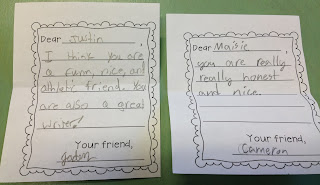 Dear Justin,
I think you are
a funn, nice, and
athletic friend. You
are also a great
writer!
Your friend,
Jadyn
Dear Maisie,
you are really
really honest
and nice.
Your friend,
Cameron